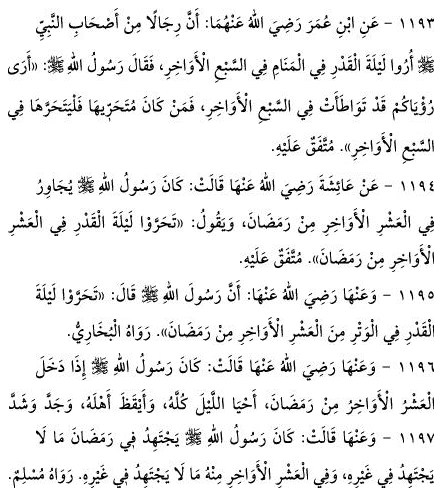 ١١٩٣ - عَنِ ابْنِ عُمَرَ رَضِيَ اللهُ عَنْهُمَا: أَنَّ رِجَالًا مِنْ أَصْحَابِ النَّبِيِّ
ﷺ أُرُوا لَيْلَةَ الْقَدْرِ فِي الْمَنَامِ فِي السَّبْعِ الْأَوَاخِرِ، فَقَالَ رَسُولُ اللهِ ﷺ: «أَرَى
رُؤْيَاكُمْ قَدْ تَوَاطَأَتْ فِي السَّبْعِ الْأَوَاخِرِ، فَمَنْ كَانَ مُتَحَرِّيهَا فَلْيَتَحَرَّهَا فِي
السَّبْعِ الْأَوَاخِرِ». مُتَّفَقٌ عَلَيْهِ.
١١٩٤ - عَنْ عَائِشَةَ رَضِيَ اللهُ عَنْهَا قَالَتْ: كَانَ رَسُولُ اللهِ ﷺ يُجَاوِرُ
فِي الْعَشْرِ الْأَوَاخِرِ مِنْ رَمَضَانَ، وَيَقُولُ: «تَحَرَّوْا لَيْلَةَ الْقَدْرِ فِي الْعَشْرِ
الْأَوَاخِرِ مِنْ رَمَضَانَ». مُتَّفَقٌ عَلَيْهِ.
١١٩٥ - وَعَنْهَا رَضِيَ اللهُ عَنْهَا: أَنَّ رَسُولَ اللهِ ﷺ قَالَ: «تَحَرَّوْا لَيْلَةَ
الْقَدْرِ فِي الْوَتْرِ مِنَ الْعَشْرِ الْأَوَاخِرِ مِنْ رَمَضَانَ». رَوَاهُ الْبُخَارِيُّ.
١١٩٦ - وَعَنْهَا رَضِيَ اللهُ عَنْهَا قَالَتْ: كَانَ رَسُولُ اللهِ ﷺ إِذَا دَخَلَ
الْعَشْرُ الْأَوَاخِرُ مِنْ رَمَضَانَ، أَحْيَا اللَّيْلَ كُلَّهُ، وَأَيْقَظَ أَهْلَهُ، وَجَدَّ وَشَدَّ
١١٩٧ - وَعَنْهَا قَالَتْ: كَانَ رَسُولُ اللهِ ﷺ يَجْتَهِدُ فِي رَمَضَانَ مَا لَا
يَجْتَهِدُ فِي غَيْرِهِ، وَفِي الْعَشْرِ الْأَوَاخِرِ مِنْهُ مَا لَا يَجْتَهِدُ فِي غَيْرِهِ. رَوَاهُ مُسْلِمٌ.